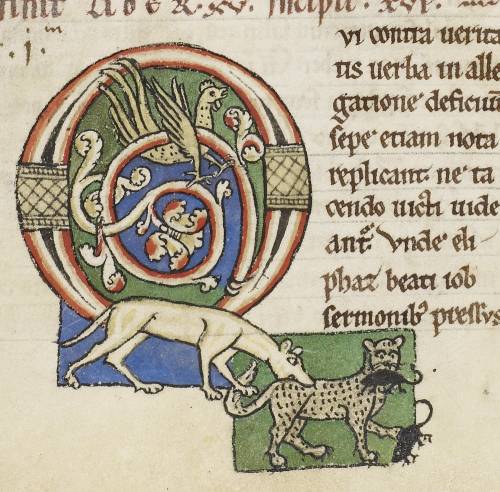 finit Lib e R. xv. Incipit. xvi.
Qvi contra uerita
tis uerba in alle
gatione deficiū
sepe etiam nota
replicant. ne ta
cendo uicti uide
ant᷑. Vnde eli
phaz beati iob
sermonib; pressus